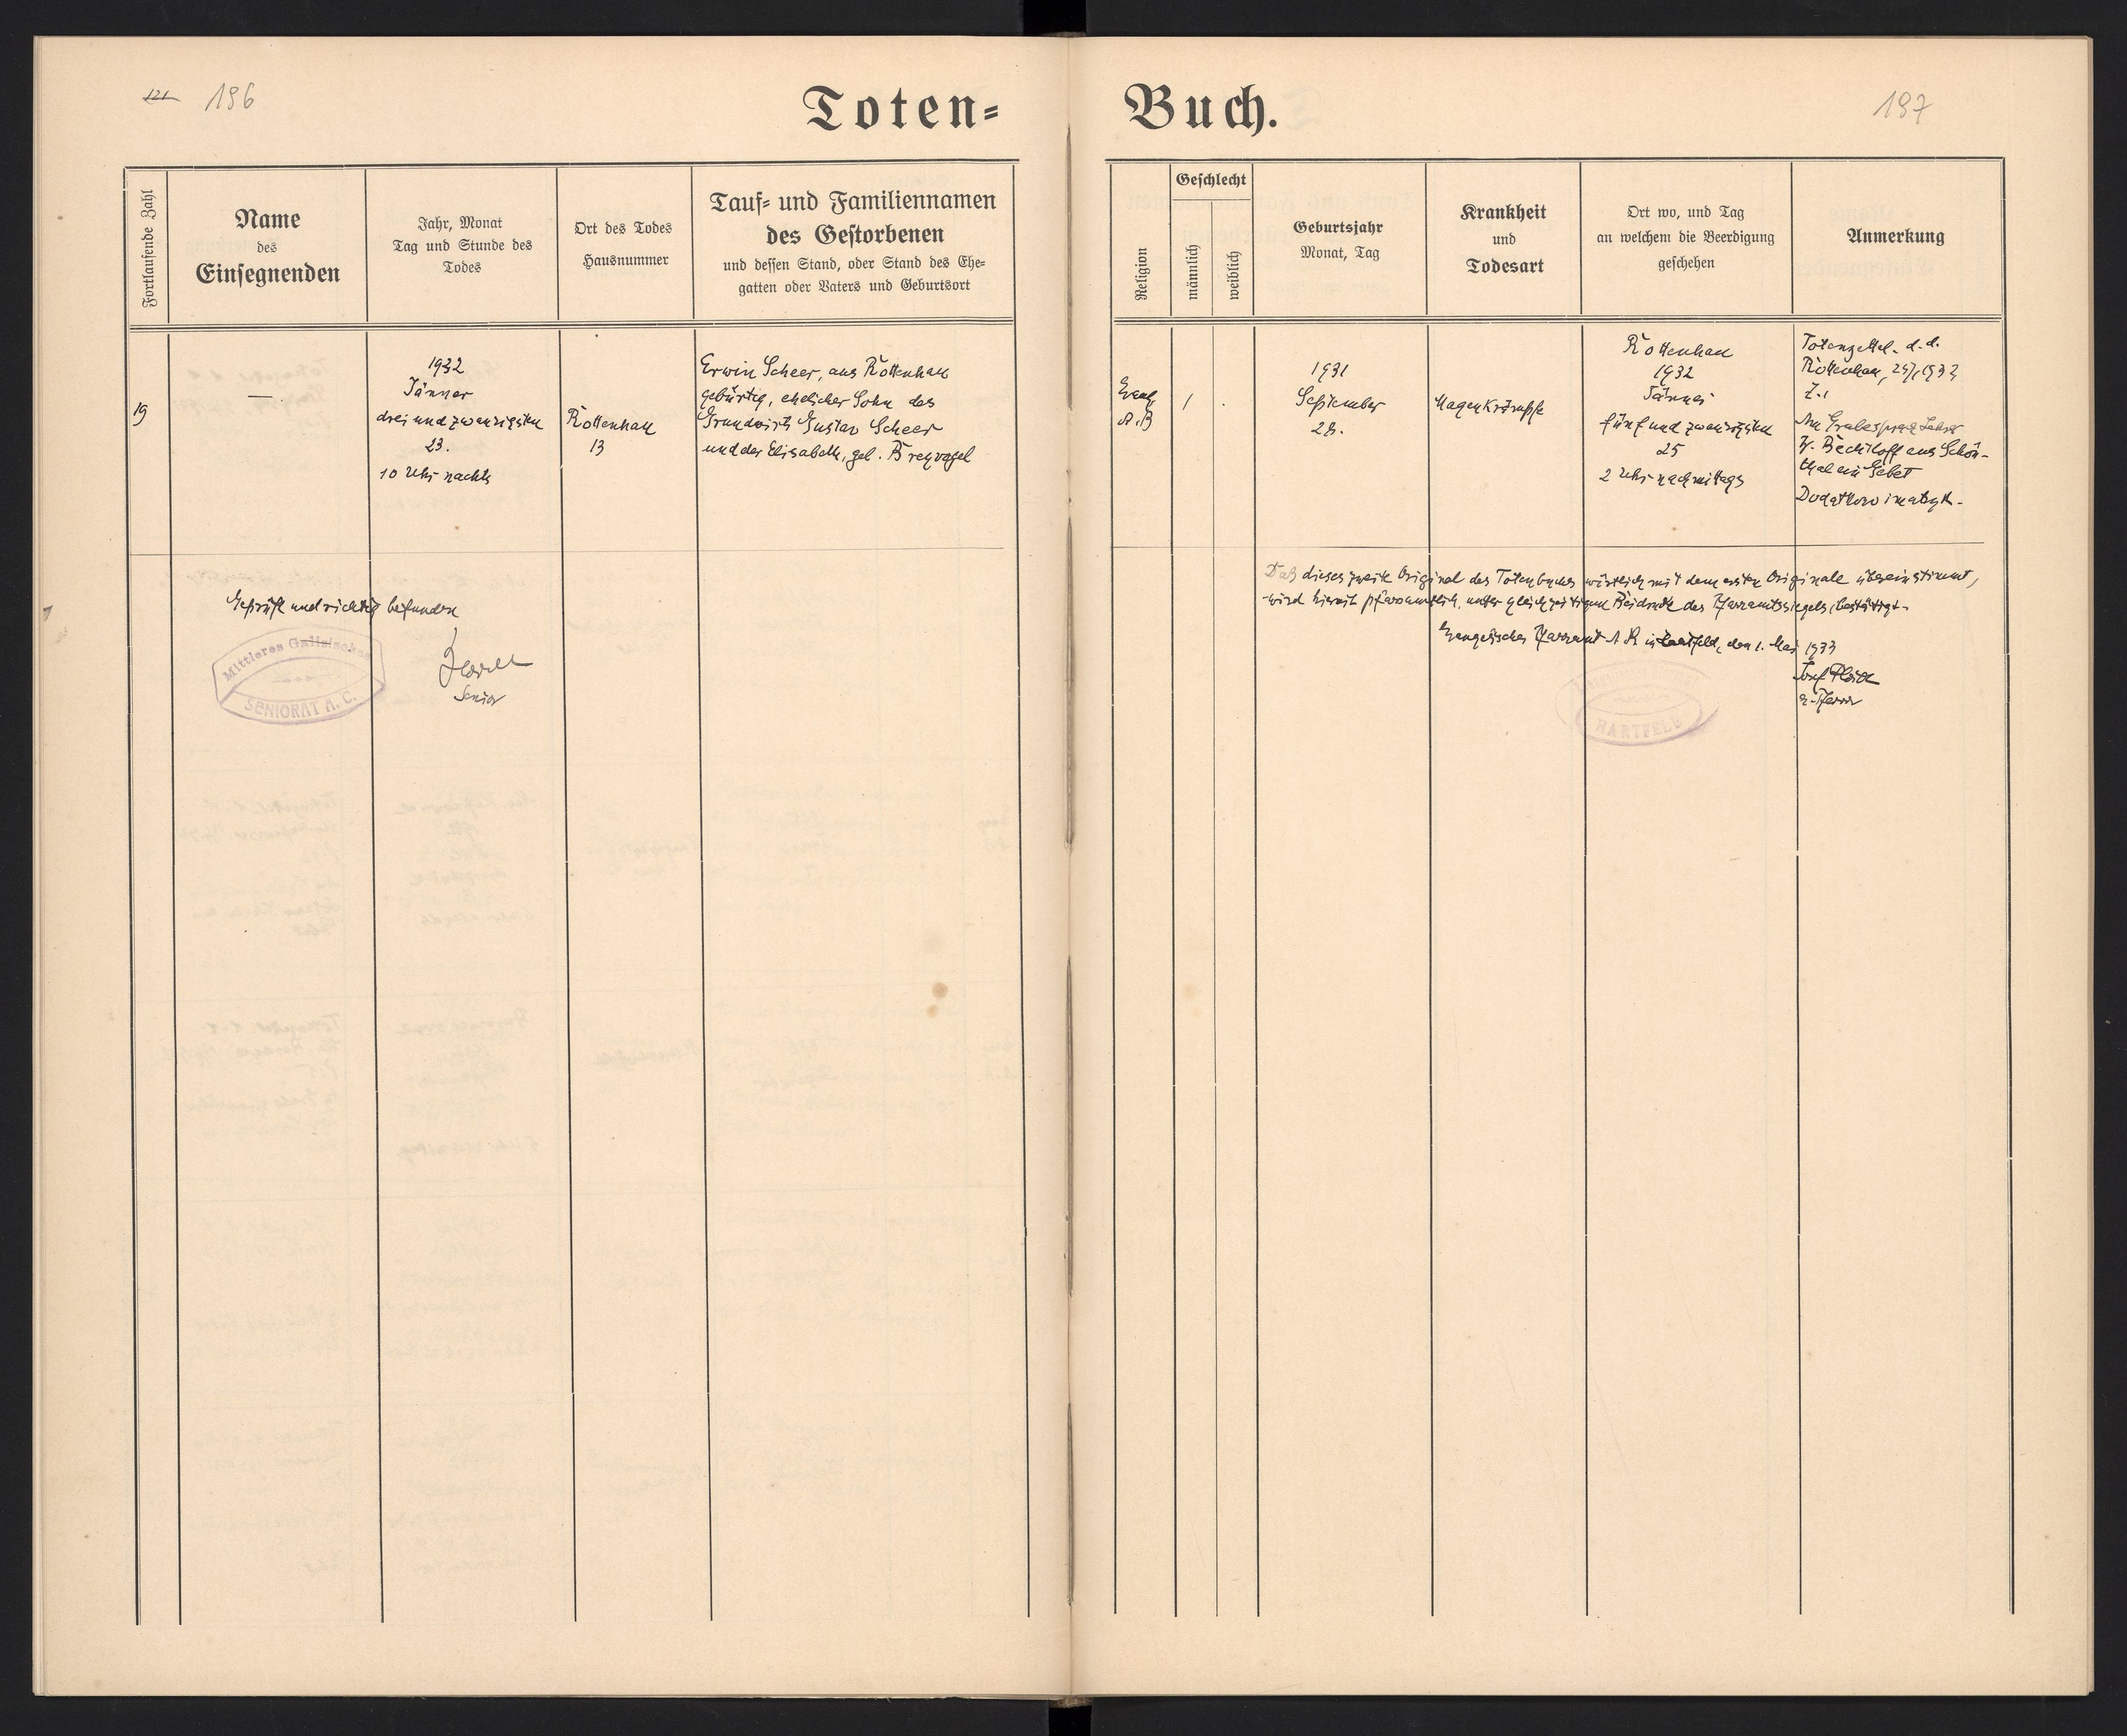 121 196
Toten=
Buch.
197
Fortlaufende Zahl
Name
des
Einsegnenden
Jahr, Monat
Tag und Stunde des
Todes
Ort des Todes
Hausnummer
Tauf= und Familiennamen
des Gestorbenen
und dessen Stand, oder Stand des Ehe=
gatten oder Vaters und Geburtsort
Religion
Geschlecht
männlich
weiblich
Geburtsjahr
Monat, Tag
Krankheit
und
Todesart
Ort wo, und Tag
an welchem die Beerdigung
geschehen
Anmerkung
19
—
1932
Jänner
dreiundzwanzigsten
23.
10 Uhr nachts
Rottenhan
13
Erwin Scheer, aus Rottenhan
gebürtig, ehelicher Sohn des
Grundwirts Gustav Scheer
und der Elisabeth, geb. Breyvogel
Evang
A.B
1
.
1931
September
28.
Magenkrämpfe
Rottenhan
1932
Jänner
fünfundzwanzigsten
25
2 Uhr nachmittags
Totenzettel. d. d.
Rottenhan,
Z. 1
Am Grabe sprach Lehrer
Bechtloff aus Schön-
thal ein Gebet
Dodatkowo
Daß dieses zweite Original des Totenbuches wörtlich mit dem ersten Originale übereinstimmt,
wird hiermit pfarramtlich, unter gleichzeitigem Beidruck des Pfarramtssiegels, bestätigt.
Evangelisches Pfarramt A B in Hartfeld, den 1. Mai 1933
Josef
e. Pfarrer
HARTFELD
Geprüft und richtig befunden
Mittleres Galizisches
SENIORAT A. C.
Senior